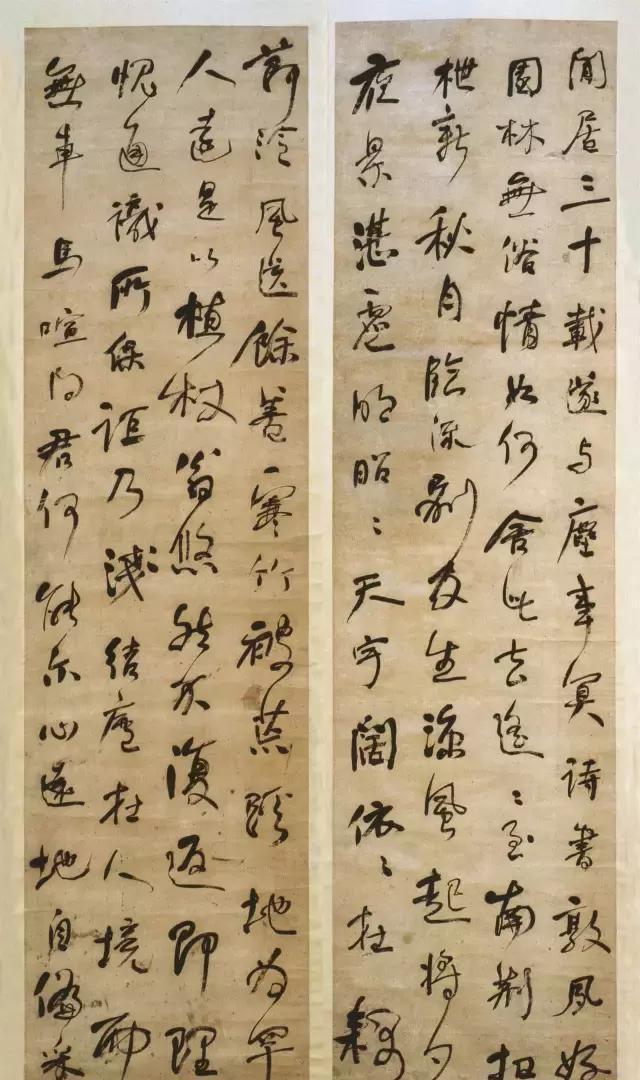 閒居三十載遂与塵事冥詩書敦夙好
園林無俗情如何舍此去遙〻至南荆扣
枻新秋月臨流別友生涼風起將夕
夜景湛虛明昭〻天宇闊依〻在耦
節泠風送餘善寒竹被荒蹊地為罕
人遠是以植杖翁悠然不復返即理
愧通識所保詎乃淺結廬在人境而
無車馬喧問君何能尔心遠地自偏采